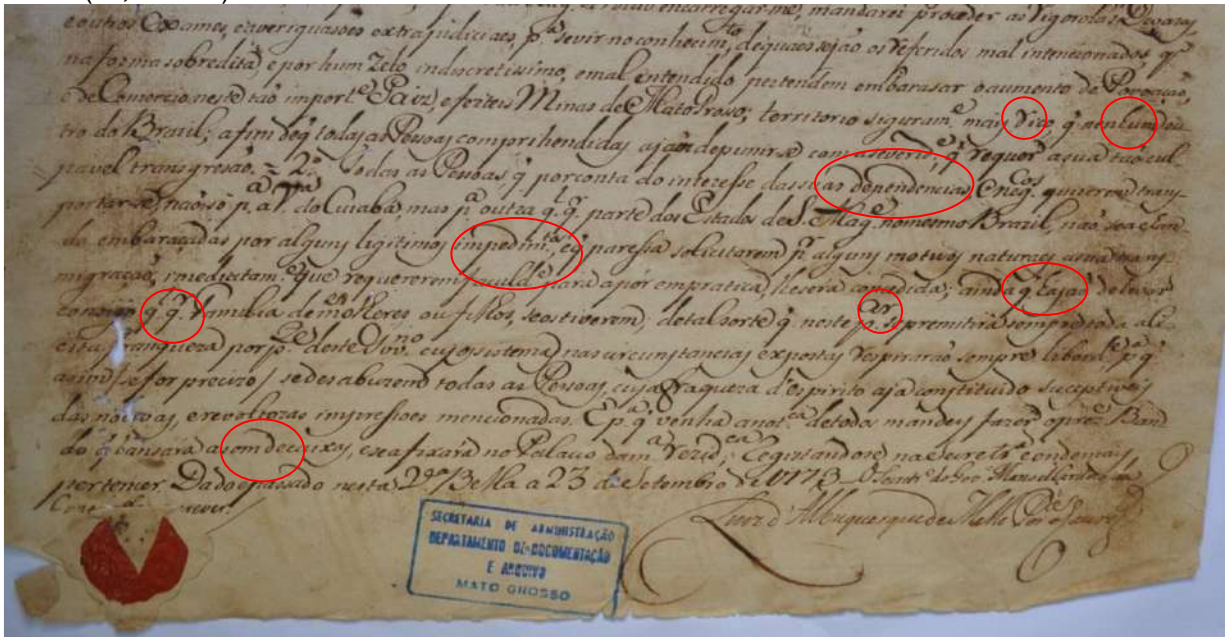 e outros Exames, e averiguasões extrajudiciaes, p.ª servir no conhecim.to, de quaes sejão os referidos mal intencionados, q̃
na forma sobredita, e por hum Zelo indiscretissimo, e mal entendido pertendem embarasar o aumento de Povoação,
e de Comercio neste tão import.e Paiz, e ferteis Minas de Mato Groso; territorio seguram.e mais Rico, q̃ nenhum ou
tro do Brazil; afim de q̃ todas as Pessoas comprihendidas
pavel transgresão. = 2.º Todas as Pessoas, q̃ por conta do interesse das suas dependencias, e neg.cos quizerem trans
portar se, não só p.ª a V.ª do Cuiabá, mas p.ª outra q.l q̃. parte dos Estados de S. Mag.e no mesmo Brazil, não
do embaraçadas por alguns ligitimos impedim.tos, e
migração, immediatam.e que requererem
consigo q.l q̃. familia de molheres, ou filhos, se os tiverem; de tal sorte q̃. neste p.ar se premitirá sempre toda a li
cita franqueza por p.te deste Gov.no cujo sistema nas circunstancias expostas respirará sempre liberd.e, p.ª q̃
asim se for precizo se desabuzem todas as Pessoas, cuja fraqueza d'espirito aja constituido suceptiveis
das nocivas, e revoltozas impressoens mencionadas. E p.ª q̃ venha a not.cia de todos mandey fazer o prez.e Ban
do q̃ se lansará a som de caixas, e se afixará no Palacio da m.ª rezid.ca Registandose na Secretr.ª e onde mais
pertencer. Dado e passado nesta V.ª Bella a 23 de Setembro de 1773
Luiz d'Albuquerque de Mello Per.ª e Caceres
SECRETARIA DE ADMINISTRAÇÃO
DEPARTAMENTO DE DOCUMENTAÇÃO
E ARQUIVO
MATO GROSSO